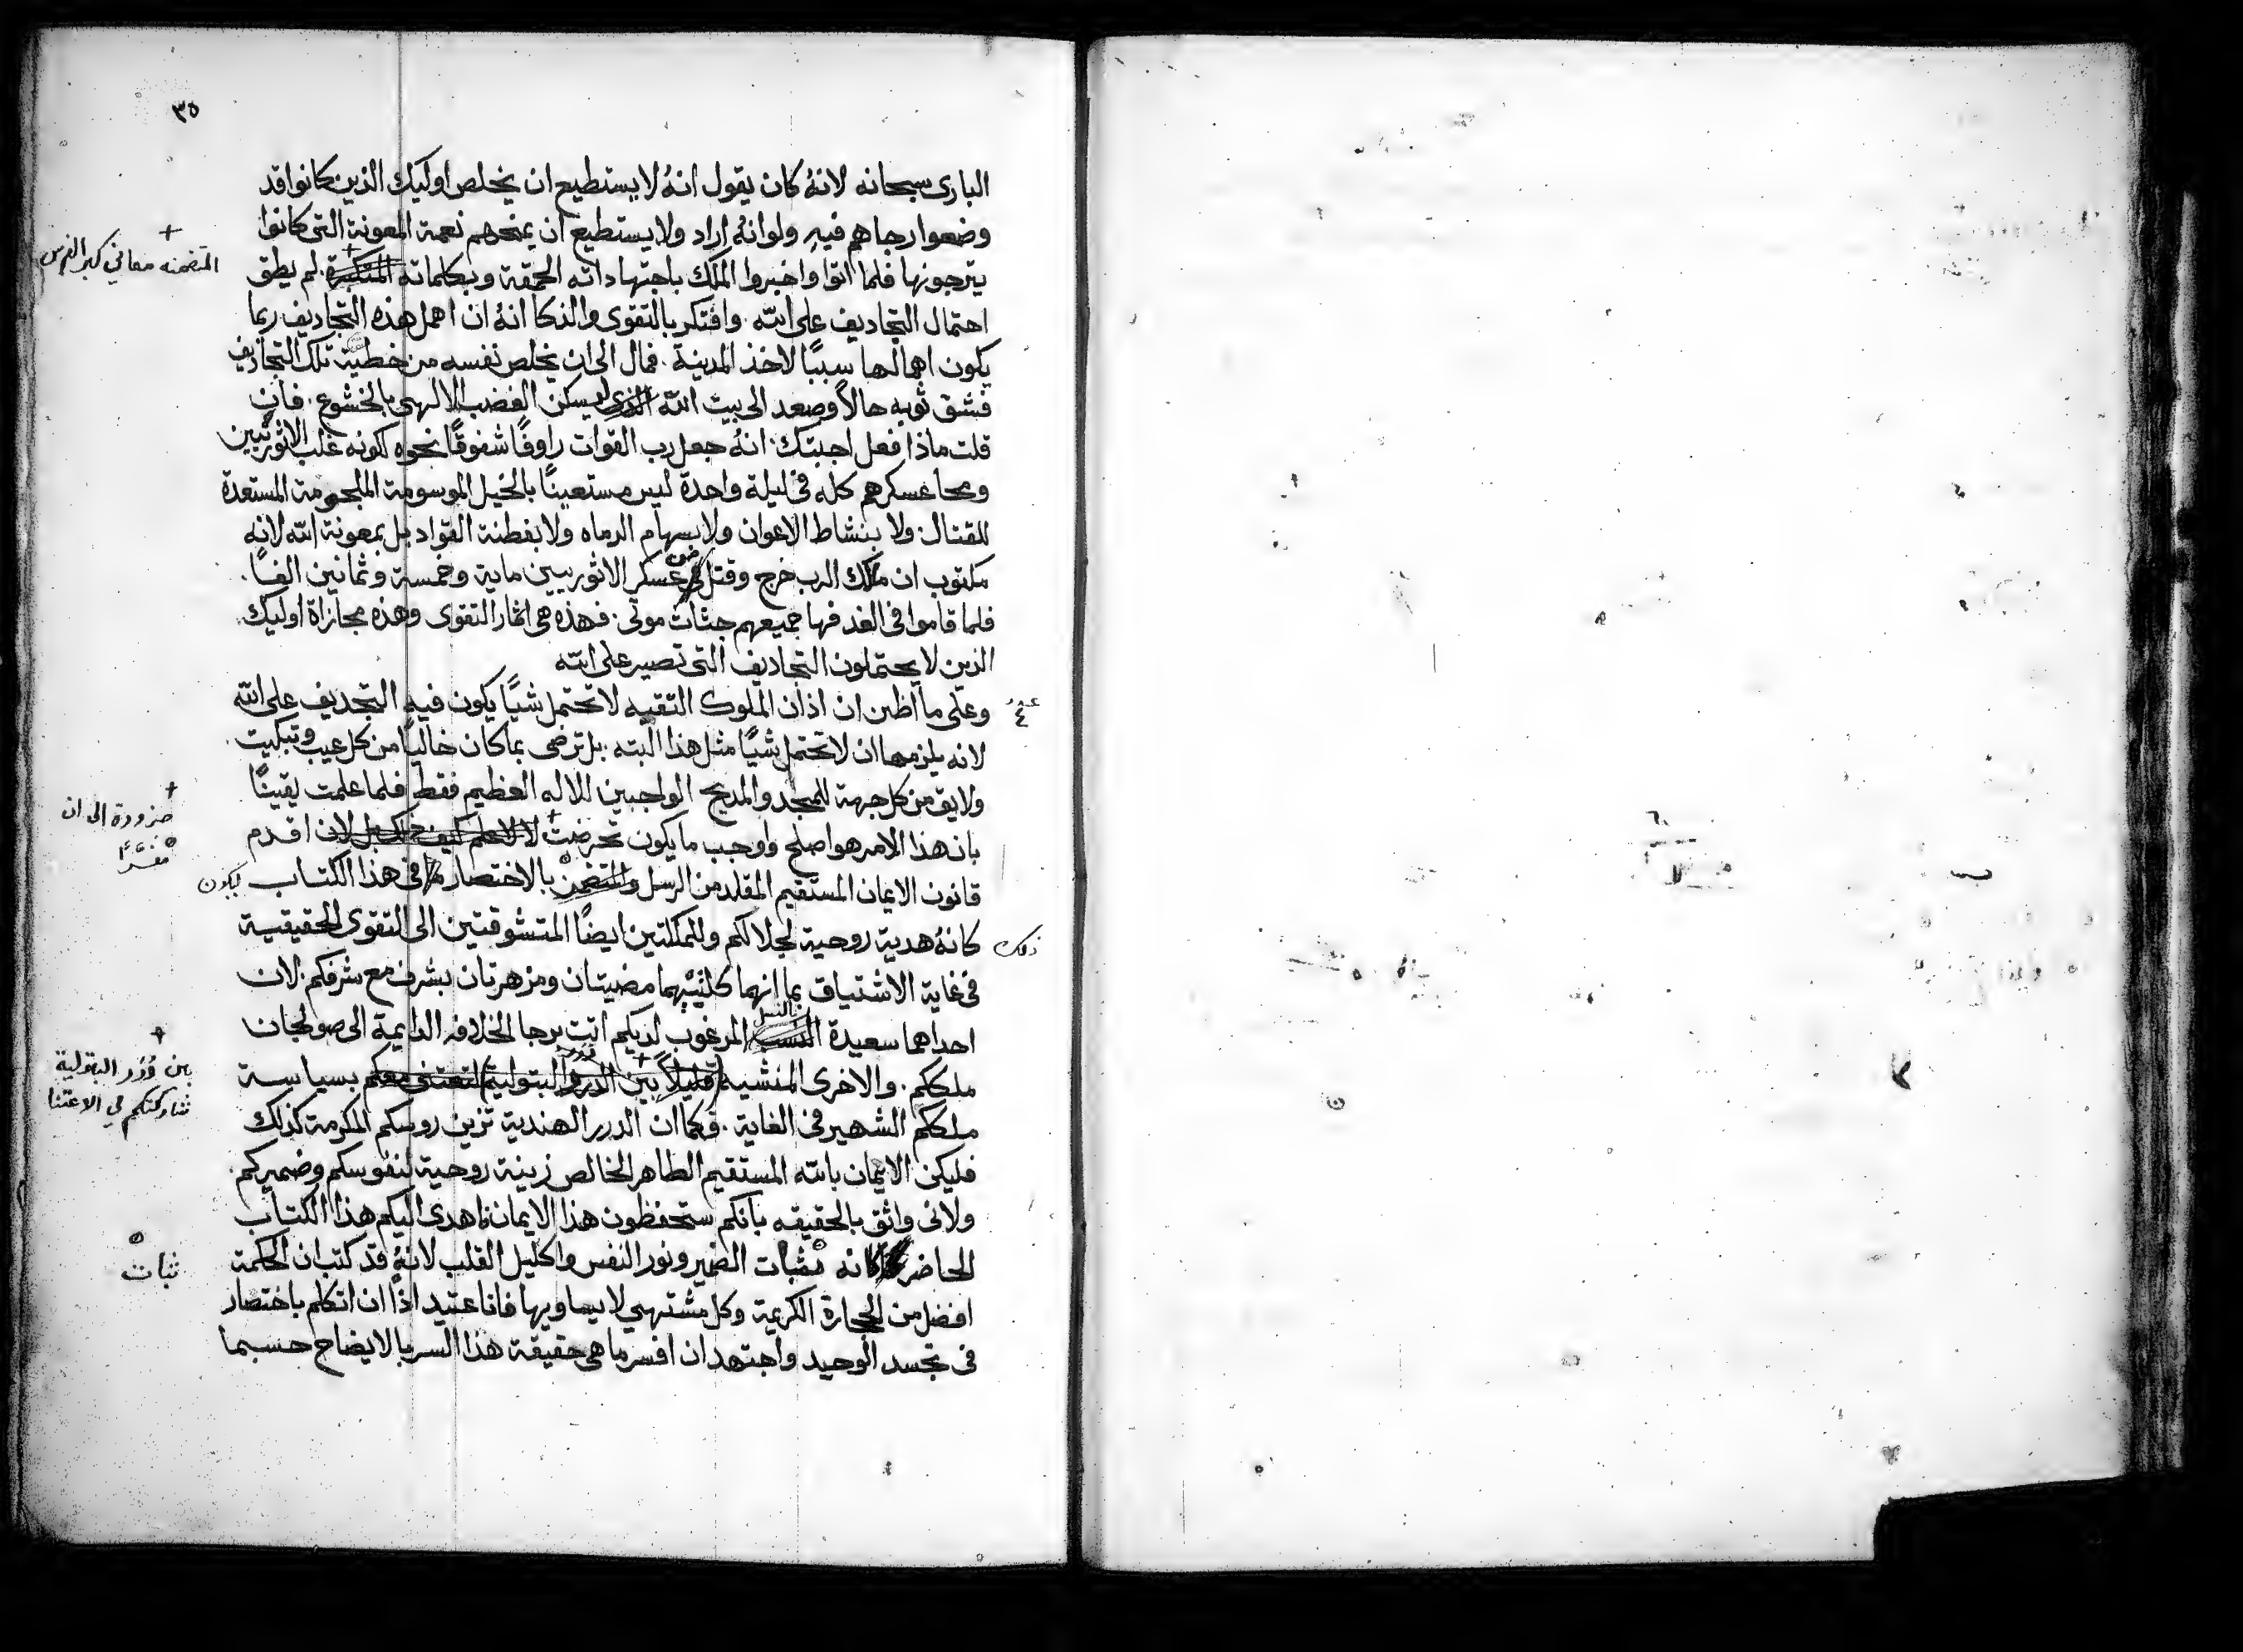 ٣٥
البارى سبحانه لانهُ كان يقول انهُ لا يستطيع ان يخلص اوليك الذين كانوا قد
وضعوا رجاهم فيهِ ولو انهُ اراد ولا يستطيع ان يمنحهم نعمة المعونة التى كانوا
المتضمنه معاني كبر
يترجونها فلما اتوا واخبروا الملك باجتهاداته الحمقة وبكلماته المتكبرة لم يطق
احتمال التجاديف على الله. وافتكر بالتقوى والذكا انهُ ان اهمل هذه التجاديف ربما
يكون اهمالها سببًا لاخذ المدينة. فمال الى ان يخلص نفسه من خطية تلك التجاديف
فشق ثوبه حالاً وصعد الى بيت الله ليسكن الغضب الالهى بالخشوع. فان
قلت ماذا فعل اجبتك. انهُ جعل رب القوات راوفًا شفوقًا نحوه لكونه غلب الاثوريين
ومحا عسكرهم كله فى ليلة واحدة ليس مستعينًا بالخيل الموسومة الملجومة المستعدة
للقتال. ولا بنشاط الاعوان ولا بسهام الرماه ولا بفطنة القواد بل بمعونة الله لانه
مكتوب ان ملاك الرب خرج وقتل من عسكر الاثوريين ماية وخمسة وثمانين الفًا.
فلما قاموا فى الغد فها جميعهم جثات موتى. فهذه هى اثمار التقوى وهذه مجازاة اوليك
الذين لا يحتملون التجاديف التى تصير على الله
وعلى ما اظن ان اذان الملوك التقيه لا تحتمل شيًا يكون فيهِ التجديف على الله
لانه يلزمها ان لا تحتمل شيًا مثل هذا البته. بل ترضى بما كان خاليًا من كل عيب وتبكيت.
ولايق من كل جهة للمجد والمديح الواجبين للاله العظيم فقط فلما علمت يقينًا
ضرورة الى ان
بان هذا الامر هو اصلح واوجب ما يكون تحرضت لا لاعلم كيف ذلك بل لان اقدم
قانون الايمان المستقيم المقلد من الرسل والمتضمن بالاختصار فى هذا الكتاب
ليكون
ذلك
كانهُ هدية روحية لجلالكم وللملكتين ايضًا المتشوقتين الى التقوى الحقيقية
فى غاية الاشتياق بما انهما كلتيهما مضيتان ومزهرتان بشرف مع شرفكم. لان
احداهما سعيدة بالنسل المرغوب لديكم اتت برجا الخلافه الدايمة الى صولجان
بين دُرَر البتولية
تشاركتكم في الاعتنا
ملككم. والاخرى المنشيه قليلاً بين الدرر البتولية لتعتنى معكم بسياسة
ملككم الشهير فى الغاية. فكما ان الدرر الهندية تزين روسكم المكرمة كذلك
فليكن الايمان بالله المستقيم الطاهر الخالص زينة روحية لنفوسكم وضميركم.
ولانى واثق بالحقيقه بانكم ستحفظون هذا الايمان اهدى اليكم هذا الكتاب
ثبات
الحاضر كانه ثبات الضمير ونور النفس واكليل القلب لانهُ قد كتب ان الحكمة
افضل من الحجارة الكريمة وكل مشتهى لا يساويها فانا عتيد اذًا ان اتكلم باختصار
فى تجسد الوحيد واجتهد ان افسر ما هى حقيقة هذا السر بالايضاح حسبما